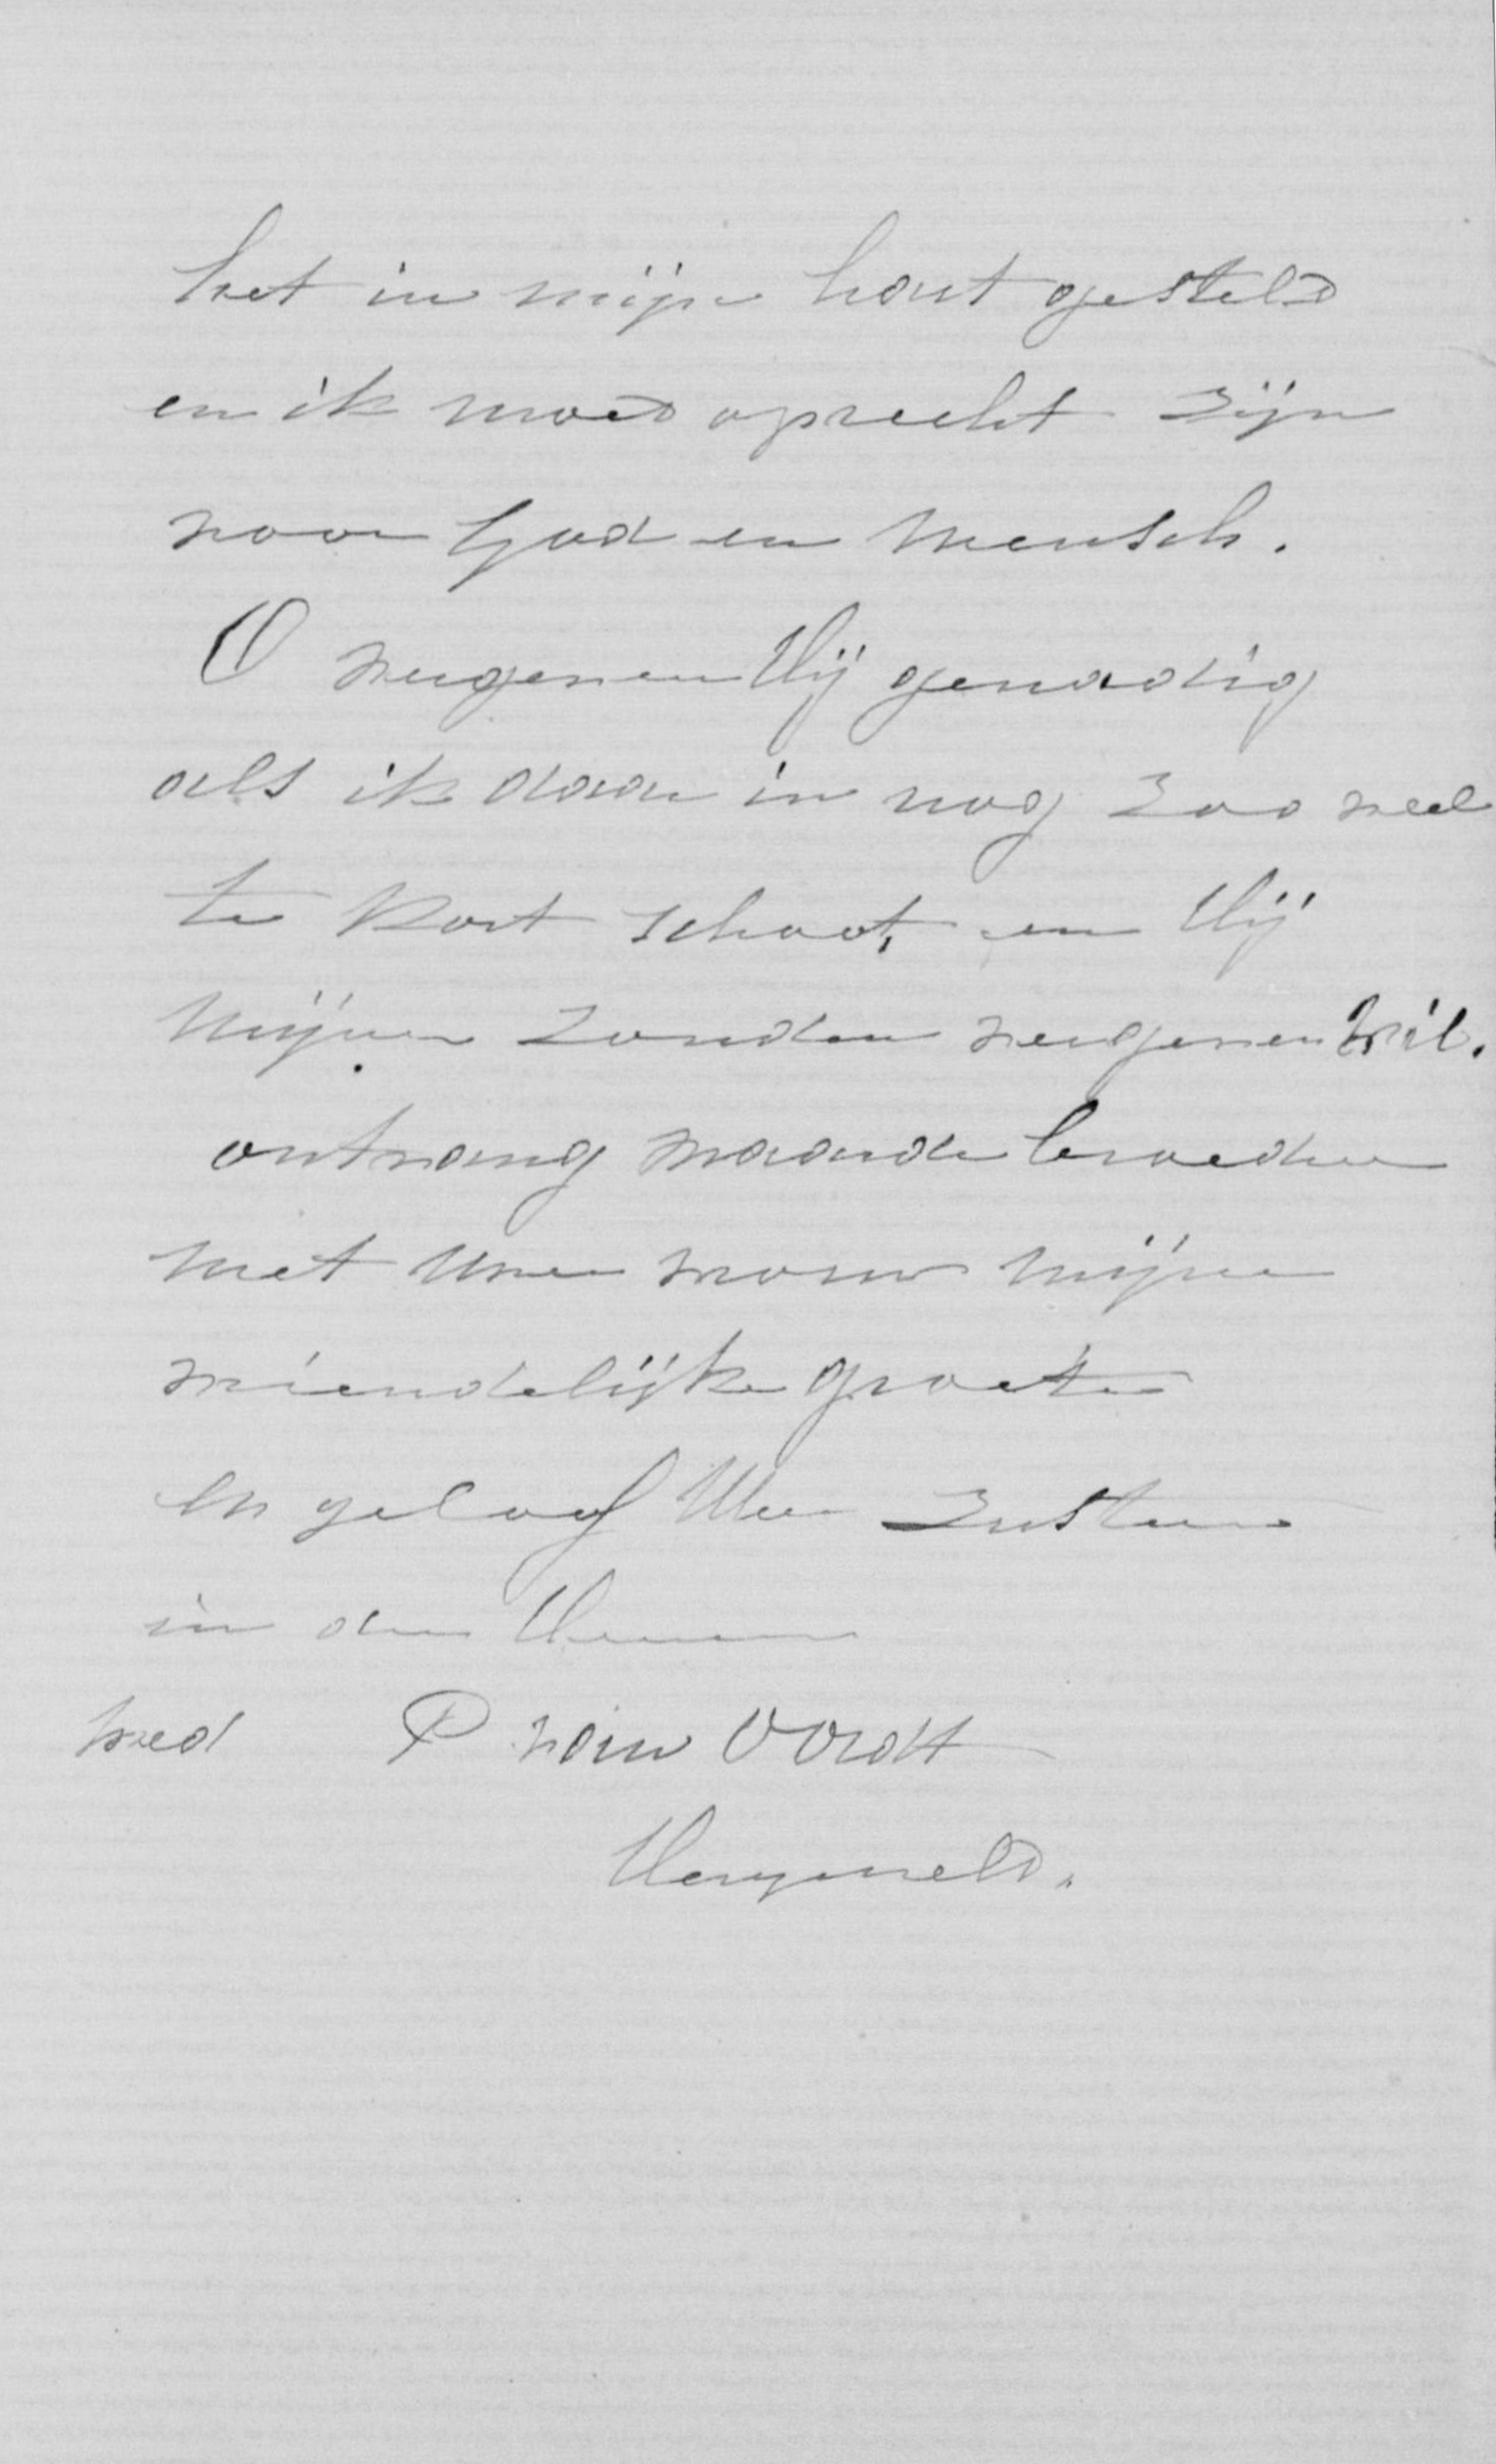 het in mijn hart gesteld
en ik moed oprecht zijn
voor God en mensch.
O vergeven Hij genadig
als ik daar in nog zoo veel
te kort schoot, en Hij
mijne zonden vergeven wil.
ontvang waarde broeder
met Uwe vrouw mijne
vriendelijke groete
en geloof Uwe zuster
in den Heere
wed P van Oordt